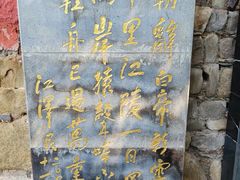 朝辞白帝彩云
千里江陵一日
两岸猿声啼不
轻舟已过万重
江泽民